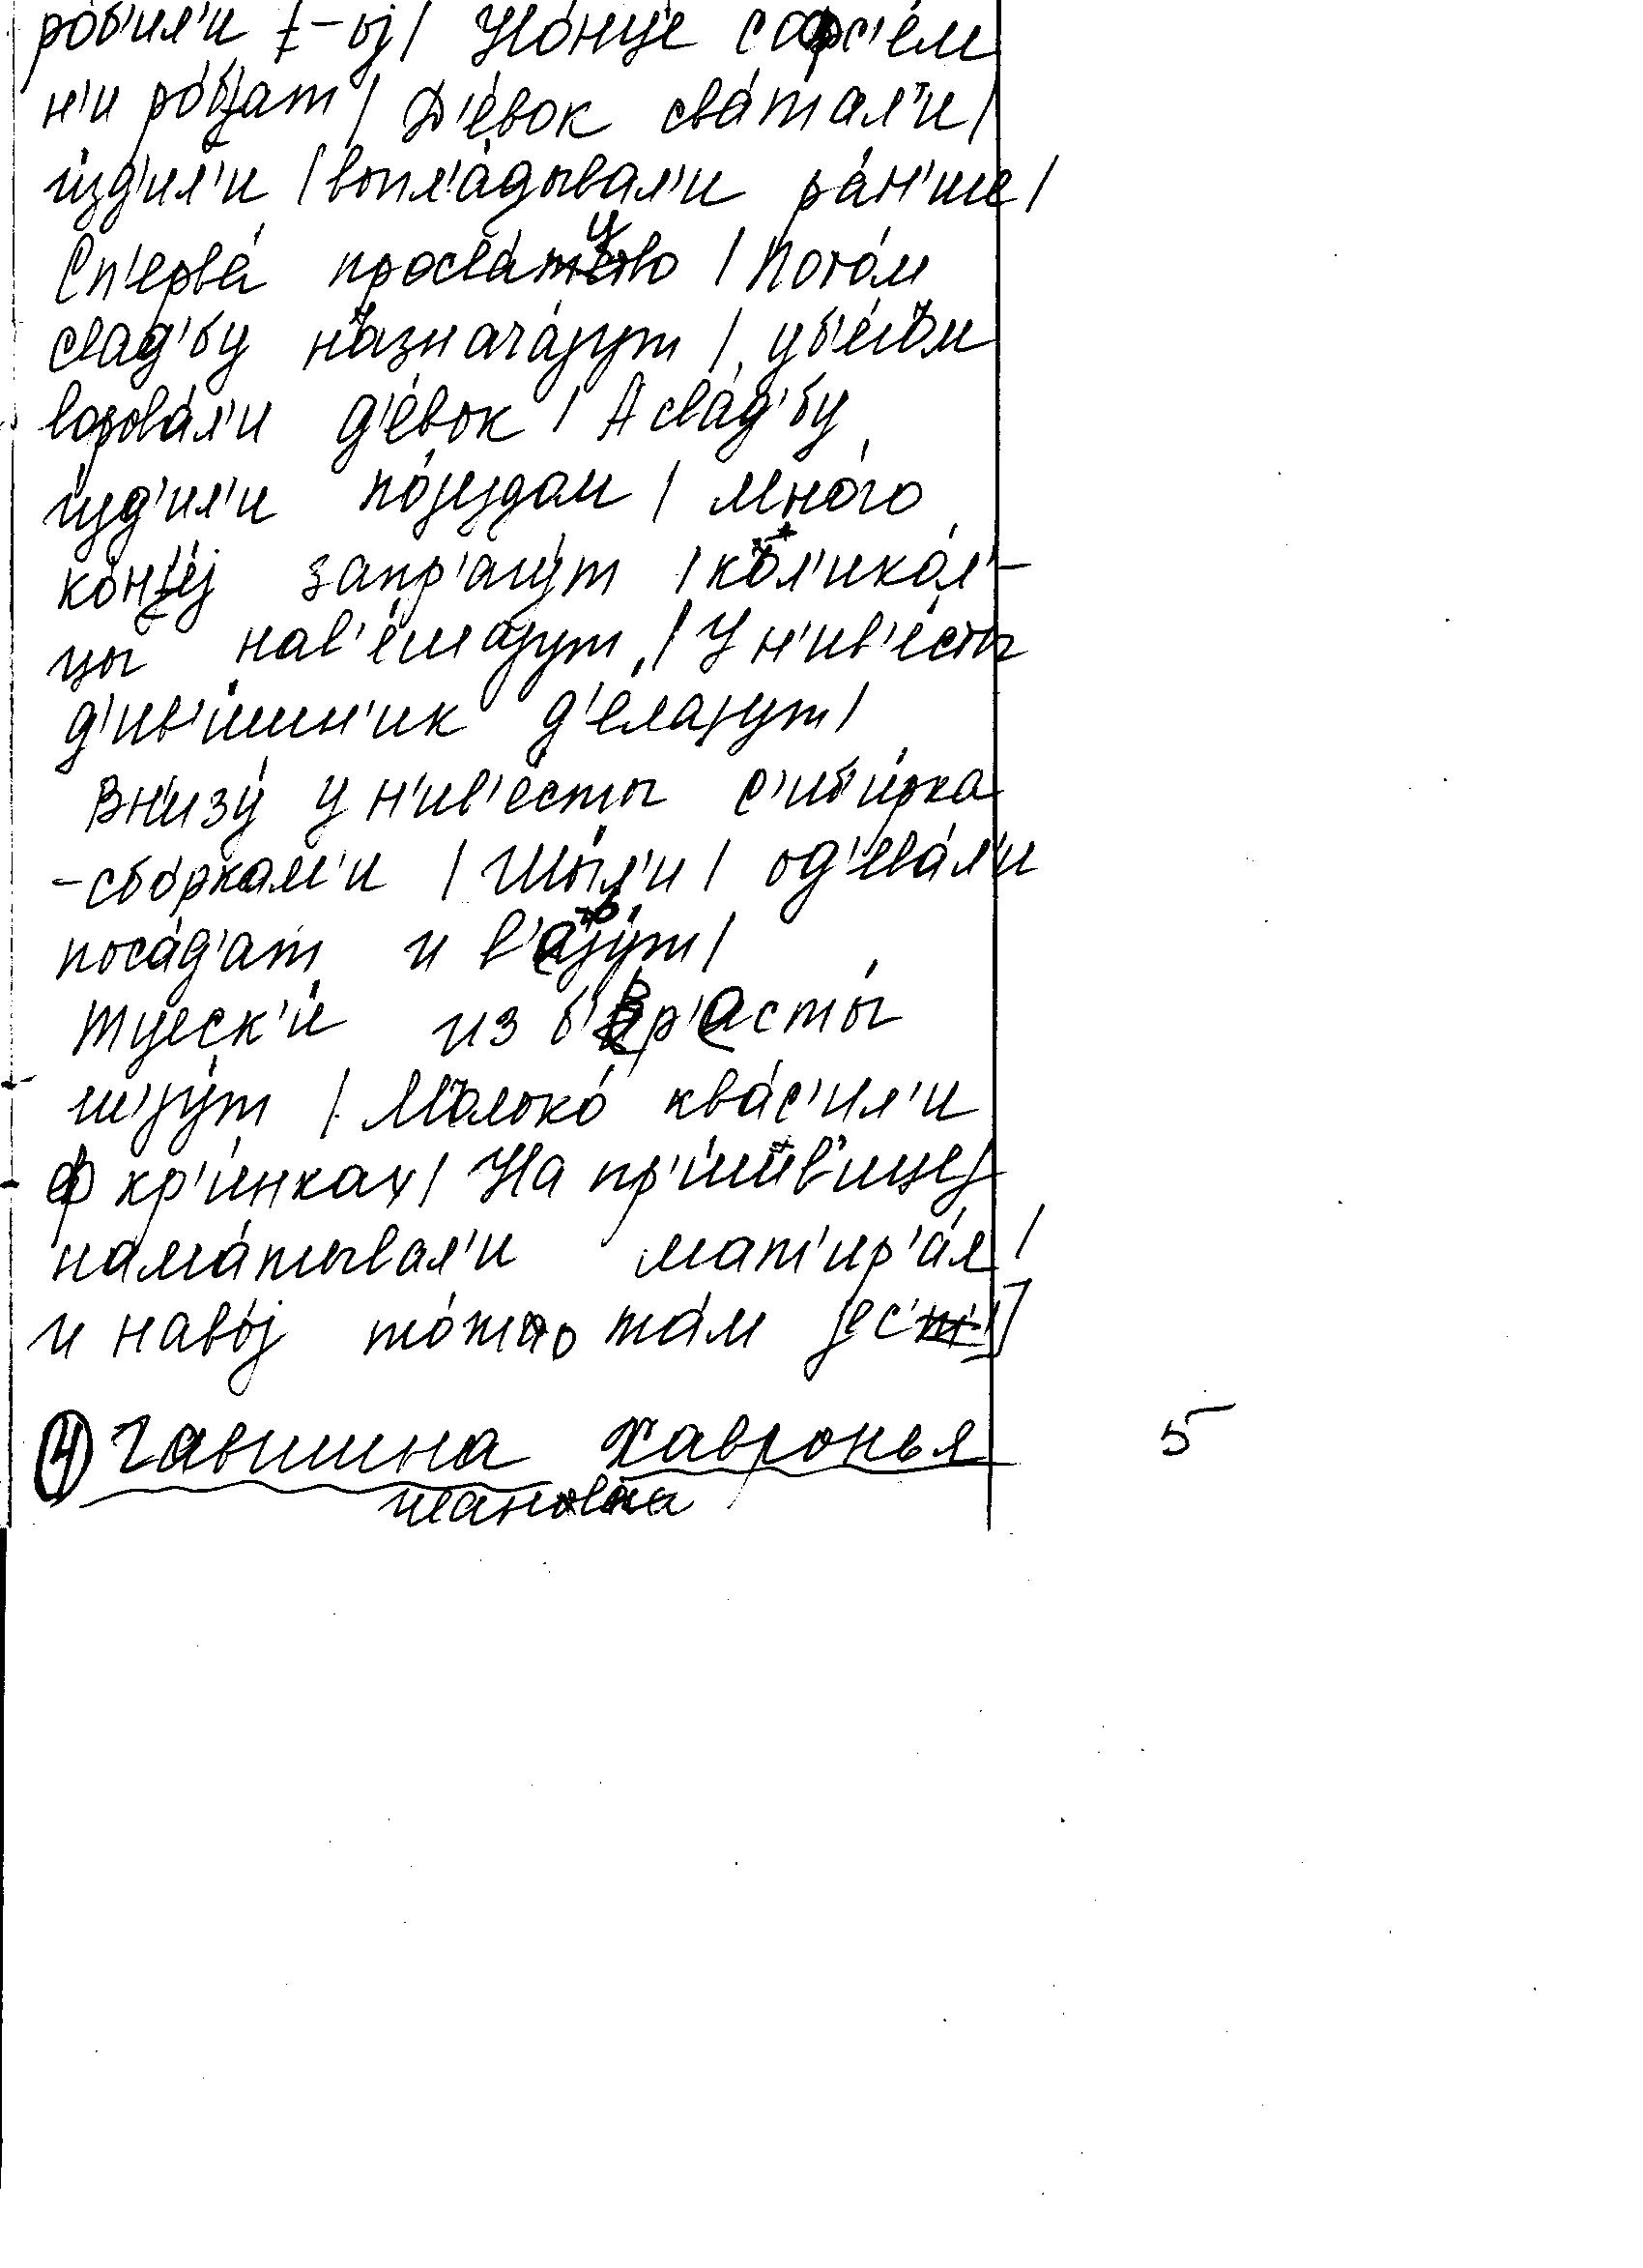 ро́б'ил'и /
Но́нц'е софс'е́м
н'и ро́бjат / Д'е́вок сва́тал'и /
и́зд'ил'и / выгл'а́дывал'и ра́н'ше /
Сп'ерва́ просва́т / Пото́м
свад'бу назнача́jут / уб'е́гом
ворова́л'и д'е́вок / А сва́д'бу
и́зд'ил'и по́jездом / мно́го
запр'агу́т / кол'око́л'-
цы нав'е́шаjут / У н'ив'е́сты
д'ив'и́шн'ик д'е́лаjут /
Вн'изу́ у н'ив'е́сты с'иб'и́рка
-сбо́ркам'и / Шы́л'и / од'ева́л'и
поса́д'ат и
туеск'и́ из б'ер'асты́
шjу́т / Молоко́ ква́с'ил'и
ф кр'и́нках / На
нама́тывал'и мат'ир'а́л /
и наво́j то́жо та́м jес'
4 Гавшина Хавронья 5